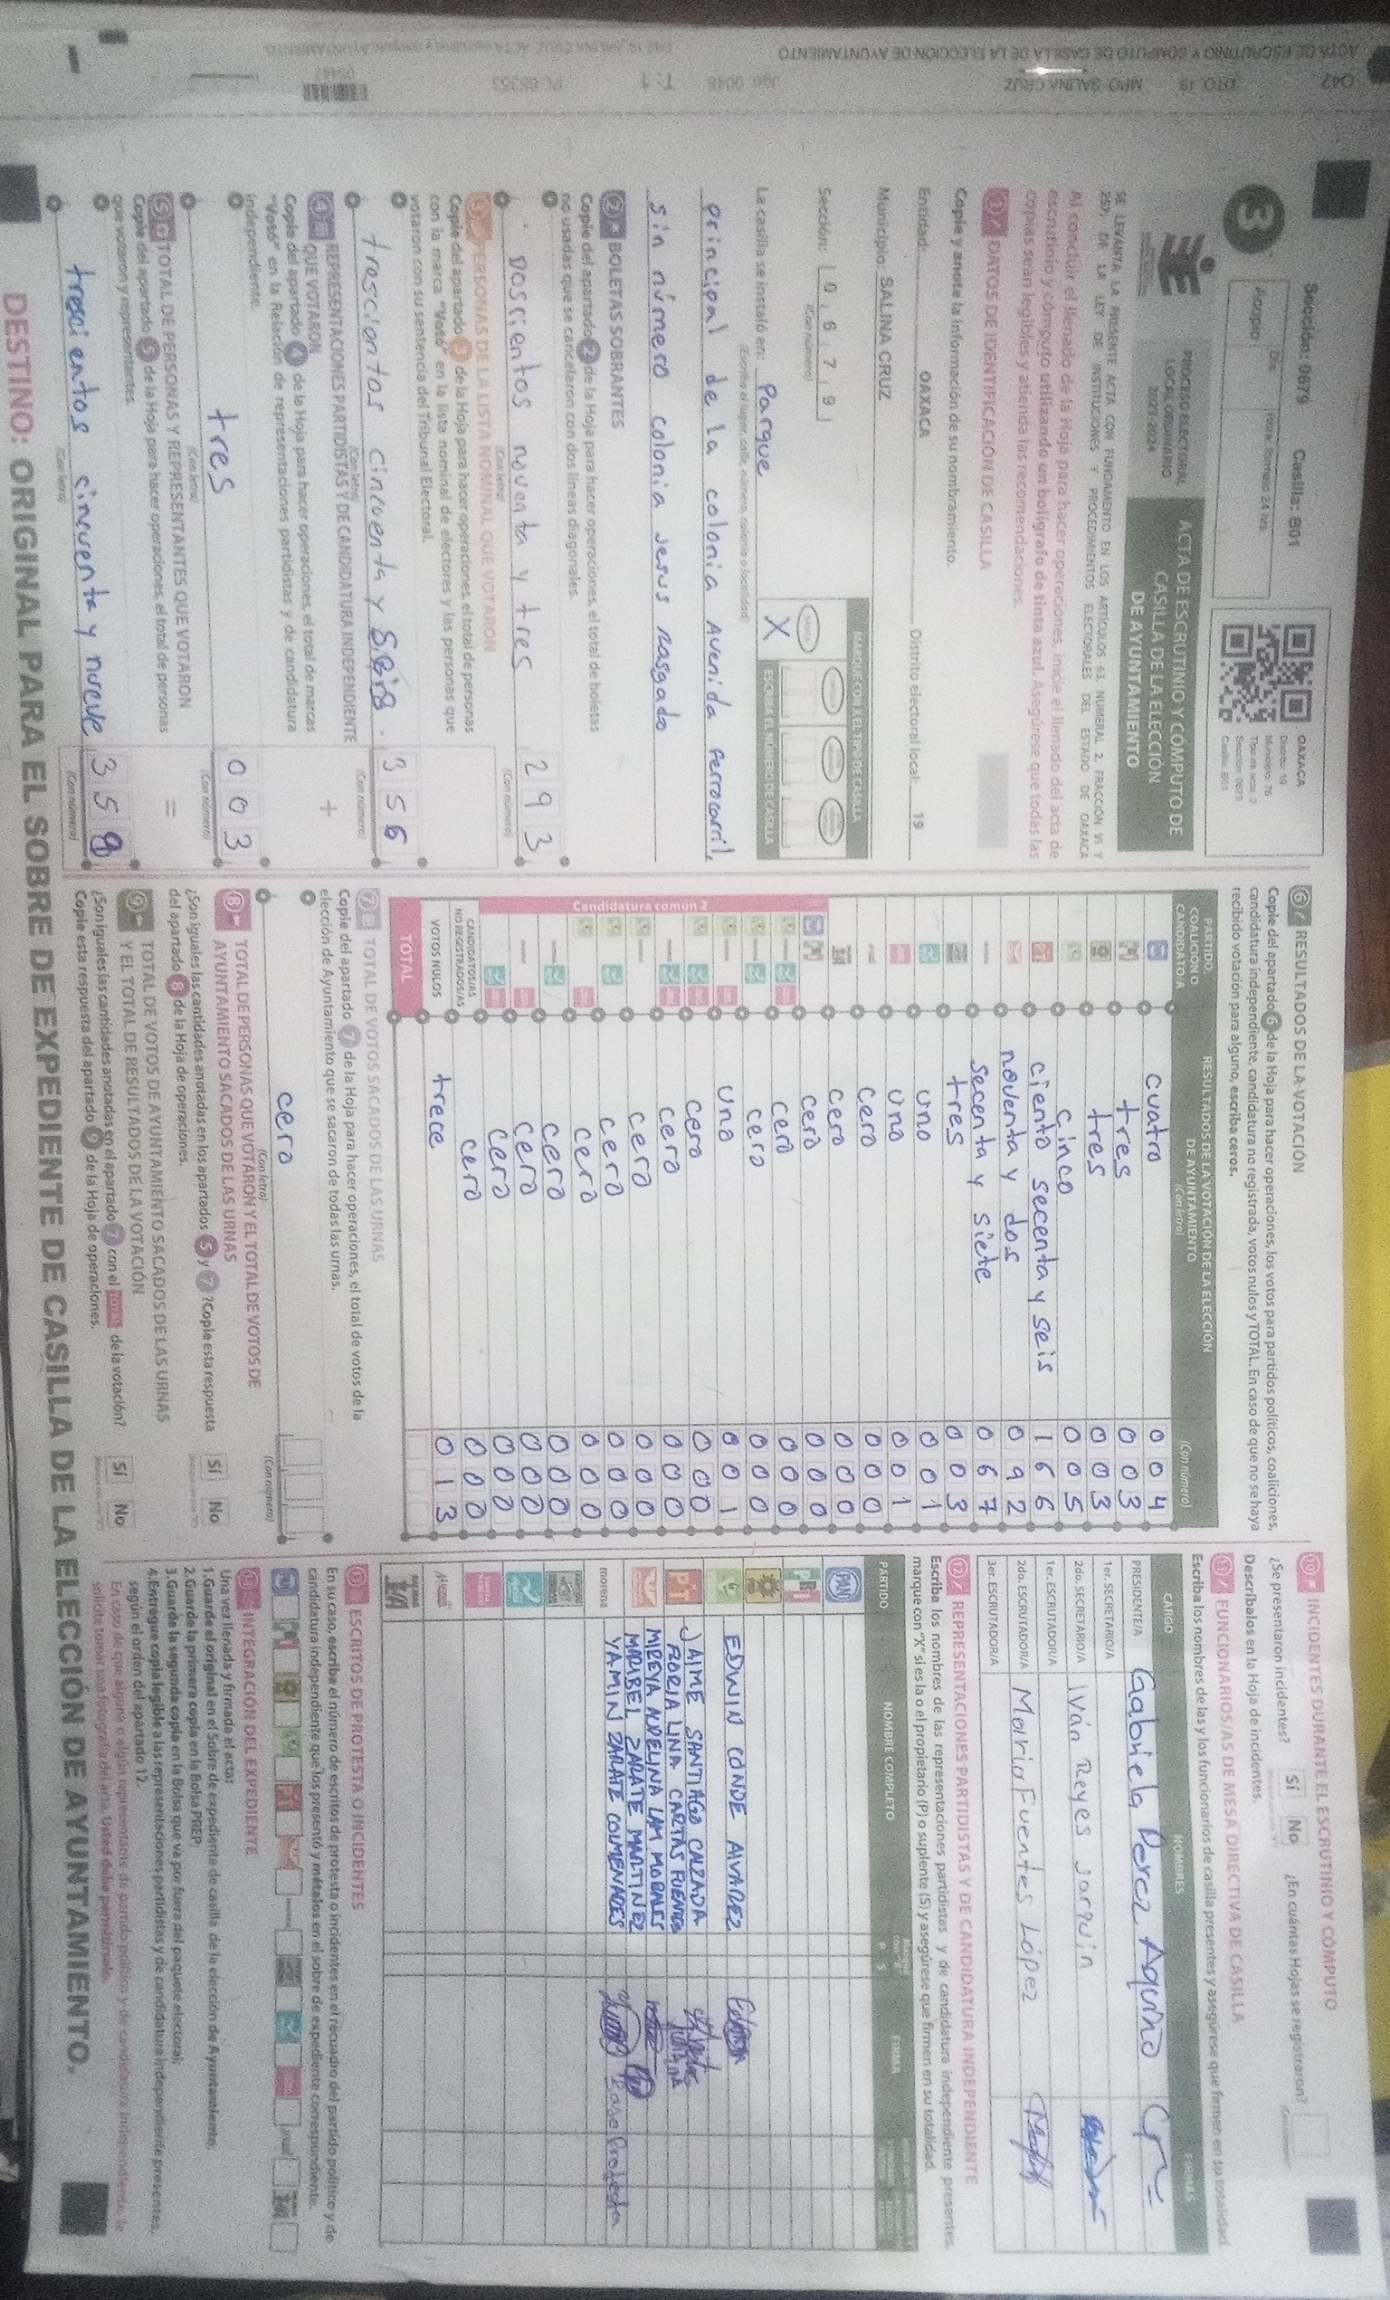 Sección: 0679 Casilla: B01
3
Acopio
OAXACA
Distrito: 19
Municipio: 76
Sección: 0679
Casilla: B01
PROCESO ELECTORAL
LOCAL ORDINARIO
2023-2024
ACTA DE ESCRUTINIO Y CÓMPUTO DE
CASILLA DE LA ELECCIÓN
DE AYUNTAMIENTO
SE LEVANTA LA PRESENTE ACTA CON FUNDAMENTO EN LOS ARTÍCULOS 63, NUMERAL 2, FRACCIÓN VI Y
257, DE LA LEY DE INSTITUCIONES Y PROCEDIMIENTOS ELECTORALES DEL ESTADO DE OAXACA
Al concluir el llenado de la Hoja para hacer operaciones, inicie el llenado del acta de
escrutinio y cómputo utilizando un bolígrafo de tinta azul. Asegúrese que todas las
copias sean legibles y atienda las recomendaciones.
1 DATOS DE IDENTIFICACIÓN DE CASILLA
Copie y anote la información de su nombramiento.
Entidad: OAXACA Distrito electoral local: 19
Municipio: SALINA CRUZ
Sección: 0 6 7 9
(Con número)
MARQUE CON X EL TIPO DE CASILLA
X
ESCRIBA EL NÚMERO DE CASILLA
La casilla se instaló en: Parque
(Escriba el lugar, calle, número, colonia o localidad)
principal de la colonia Avenida Ferrocarril,
sin número colonia Jesus Rasgado
2 BOLETAS SOBRANTES
Copie del apartado 2 de la Hoja para hacer operaciones, el total de boletas
no usadas que se cancelaron con dos líneas diagonales.
Doscientos noventa y tres 2 9 3
(Con letra) (Con número)
3 PERSONAS DE LA LISTA NOMINAL QUE VOTARON
Copie del apartado 3 de la Hoja para hacer operaciones, el total de personas
con la marca "Votó" en la lista nominal de electores y las personas que
votaron con su sentencia del Tribunal Electoral.
trescientos cincuenta y seis 3 5 6
(Con letra) (Con número)
4 REPRESENTACIONES PARTIDISTAS Y DE CANDIDATURA INDEPENDIENTE
QUE VOTARON +
Copie del apartado 4 de la Hoja para hacer operaciones, el total de marcas
"Votó" en la Relación de representaciones partidistas y de candidatura
independiente.
tres 0 0 3
(Con letra) (Con número)
5 TOTAL DE PERSONAS Y REPRESENTANTES QUE VOTARON =
Copie del apartado 5 de la Hoja para hacer operaciones, el total de personas
que votaron y representantes.
trescientos cincuenta y nueve 3 5 9
(Con letra) (Con número)
6 RESULTADOS DE LA VOTACIÓN
Copie del apartado 6 de la Hoja para hacer operaciones, los votos para partidos políticos, coaliciones,
candidatura independiente, candidatura no registrada, votos nulos y TOTAL. En caso de que no se haya
recibido votación para alguno, escriba ceros.
PARTIDO, COALICIÓN O CANDIDATO/A
RESULTADOS DE LA VOTACIÓN DE LA ELECCIÓN
DE AYUNTAMIENTO
(Con letra) (Con número)
cuatro 0 0 4
tres 0 0 3
tres 0 0 3
cinco 0 0 5
ciento secenta y seis 1 6 6
noventa y dos 0 9 2
secenta y siete 0 6 7
tres 0 0 3
uno 0 0 1
uno 0 0 1
cero 0 0 0
cero 0 0 0
cero 0 0 0
Candidatura común 2
cero 0 0 0
cero 0 0 0
uno 0 0 1
cero 0 0 0
cero 0 0 0
cero 0 0 0
cero 0 0 0
cero 0 0 0
cero 0 0 0
cero 0 0 0
cero 0 0 0
CANDIDATOS/AS
NO REGISTRADOS/AS cero 0 0 0
VOTOS NULOS trece 0 1 3
TOTAL
7 TOTAL DE VOTOS SACADOS DE LAS URNAS
Copie del apartado 7 de la Hoja para hacer operaciones, el total de votos de la
elección de Ayuntamiento que se sacaron de todas las urnas.
cero
(Con letra) (Con número)
8 TOTAL DE PERSONAS QUE VOTARON Y EL TOTAL DE VOTOS DE
AYUNTAMIENTO SACADOS DE LAS URNAS
¿Son iguales las cantidades anotadas en los apartados 5 y 7? Copie esta respuesta
del apartado 8 de la Hoja de operaciones. Sí No
9 TOTAL DE VOTOS DE AYUNTAMIENTO SACADOS DE LAS URNAS
Y EL TOTAL DE RESULTADOS DE LA VOTACIÓN
¿Son iguales las cantidades anotadas en el apartado 7 con el TOTAL de la votación? Sí No
Copie esta respuesta del apartado 9 de la Hoja de operaciones.
10 INCIDENTES DURANTE EL ESCRUTINIO Y CÓMPUTO
¿Se presentaron incidentes? Sí No ¿En cuántas Hojas se registraron?
Descríbalos en la Hoja de incidentes.
11 FUNCIONARIOS/AS DE MESA DIRECTIVA DE CASILLA
Escriba los nombres de las y los funcionarios de casilla presentes y asegúrese que firmen en su totalidad
CARGO NOMBRES FIRMAS
PRESIDENTE/A Gabriela Perez Aquino
1er. SECRETARIO/A
2do. SECRETARIO/A Iván Reyes Jarquin
1er. ESCRUTADOR/A
2do. ESCRUTADOR/A Maria Fuentes López
3er. ESCRUTADOR/A
12 REPRESENTACIONES PARTIDISTAS Y DE CANDIDATURA INDEPENDIENTE
Escriba los nombres de las representaciones partidistas y de candidatura independiente presentes,
marque con "X" si es la o el propietario (P) o suplente (S) y asegúrese que firmen en su totalidad.
PARTIDO NOMBRE COMPLETO P S FIRMA
PAN
PRI
EDWIN CONDE ALVAREZ
JAIME SANTIAGO CALZADA
PT FLORIA LINA CARTAS FUENTES
MIREYA ADELINA LAM MORALES
MARIBEL ZARATE MARTINEZ
morena YAMIN ZARATE COLMENARES
13 ESCRITOS DE PROTESTA O INCIDENTES
En su caso, escriba el número de escritos de protesta o incidentes en el recuadro del partido político y de
candidatura independiente que los presentó y métalos en el sobre de expediente correspondiente.
14 INTEGRACIÓN DEL EXPEDIENTE
Una vez llenada y firmada el acta:
1. Guarde el original en el Sobre de expediente de casilla de la elección de Ayuntamiento;
2. Guarde la primera copia en la Bolsa PREP;
3. Guarde la segunda copia en la Bolsa que va por fuera del paquete electoral;
4. Entregue copia legible a las representaciones partidistas y de candidatura independiente presentes,
según el orden del apartado 12.
En caso de que alguno o algún representante de partido político y de candidatura independiente, le
solicite tomar una fotografía del acta, Usted debe permitírselo.
DESTINO: ORIGINAL PARA EL SOBRE DE EXPEDIENTE DE CASILLA DE LA ELECCIÓN DE AYUNTAMIENTO.